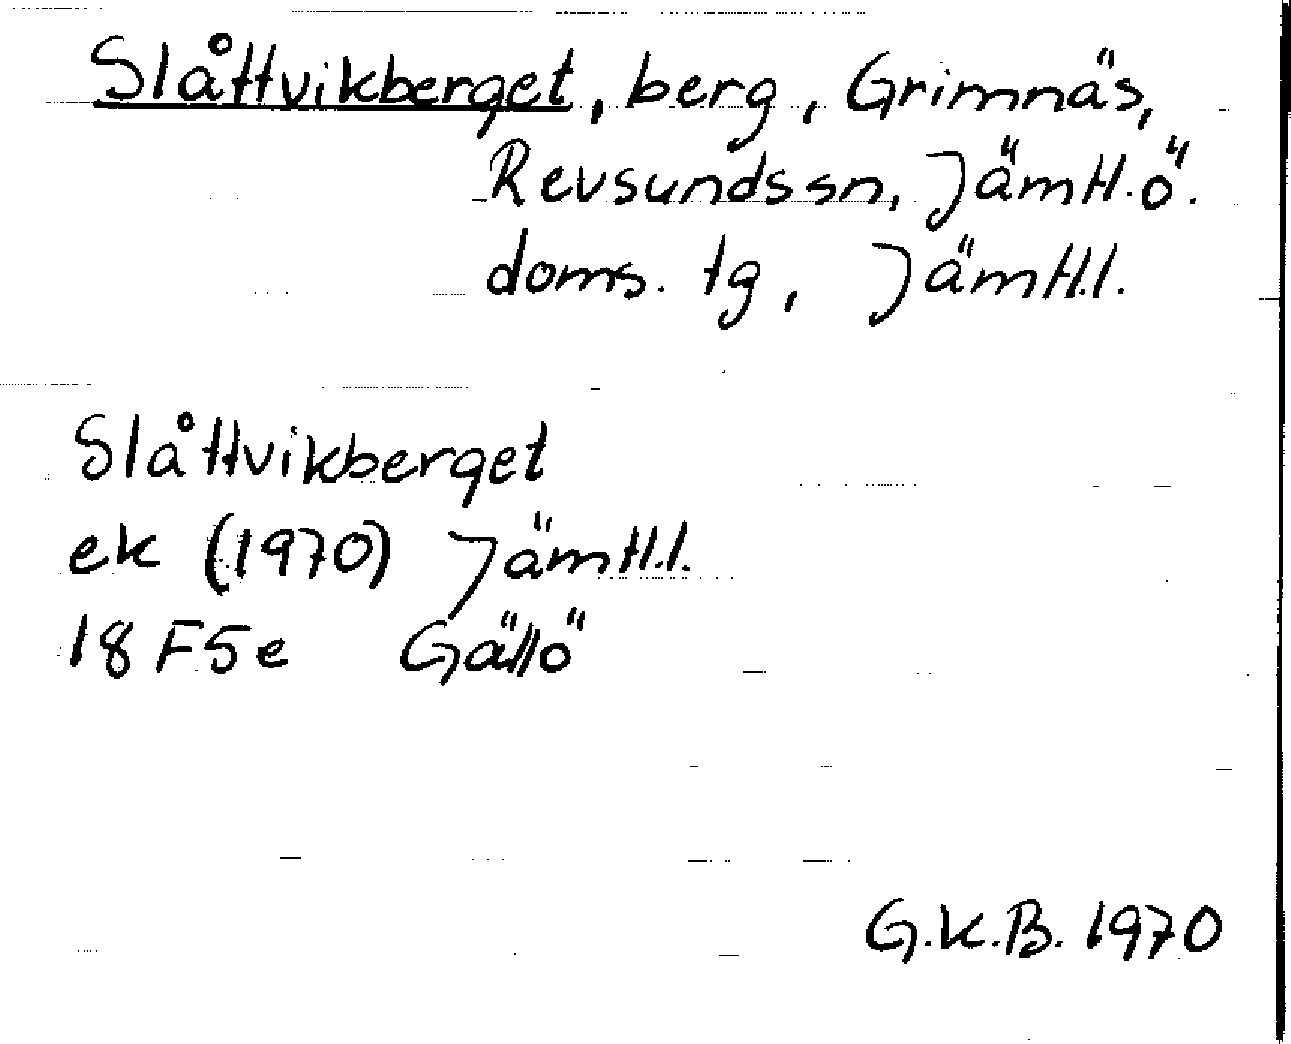 Slåttvikberget, berg, Grimnäs,
Revsunds sn, Jämtl. ö.
doms. tg, Jämtl.l.
Slåttvikberget
ek (1970) Jämtl.l.
18 F5e Gällö
G.K.B. 1970